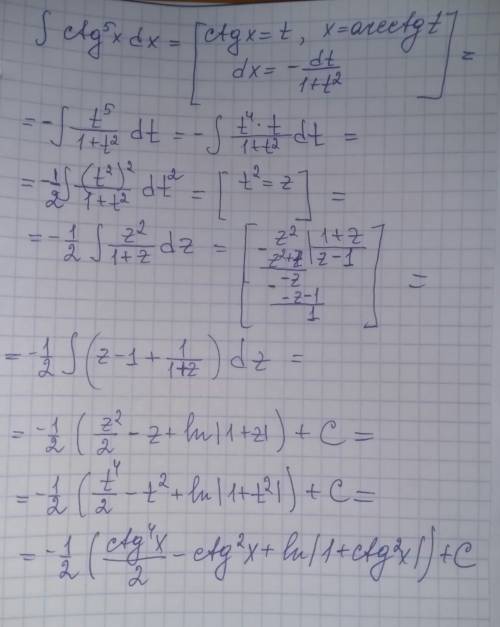 ∫ ctg⁵x dx = [ctg x = t, x = arcctg t
dx = - dt/(1+t²)] =
= -∫ t⁵/(1+t²) dt = -∫ (t⁴·t)/(1+t²) dt =
= -1/2 ∫ (t²)²/(1+t²) dt² = [t² = z] =
= -1/2 ∫ z²/(1+z) dz = [- z² | 1+z
z²+z | z-1
- -z
-z-1
1] =
= -1/2 ∫ (z - 1 + 1/(1+z)) dz =
= -1/2 (z²/2 - z + ln|1+z|) + C =
= -1/2 (t⁴/2 - t² + ln|1+t²|) + C =
= -1/2 (ctg⁴x/2 - ctg²x + ln|1+ctg²x|) + C